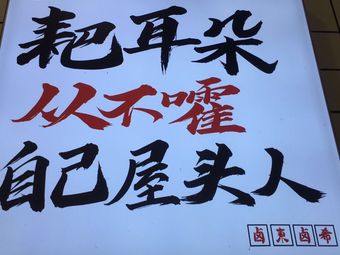 耙耳朵
从不嚯
自己屋头人
卤東卤希